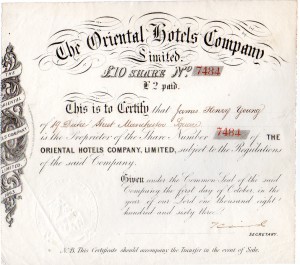 The Oriental Hotels Company
Limited.
£10 SHARE Nº 7484
£2 paid.
This is to Certify that James Henry Young
of 19 Duke Street Manchester Square
is the Proprietor of the Share Number 7484 of THE
ORIENTAL HOTELS COMPANY, LIMITED, subject to the Regulations
of the said Company.
Given under the Common Seal of the said
Company the first day of October, in the
year of our Lord one thousand eight
hundred and sixty three.
SECRETARY.
N.B. This Certificate should accompany the Transfer in the event of Sale.